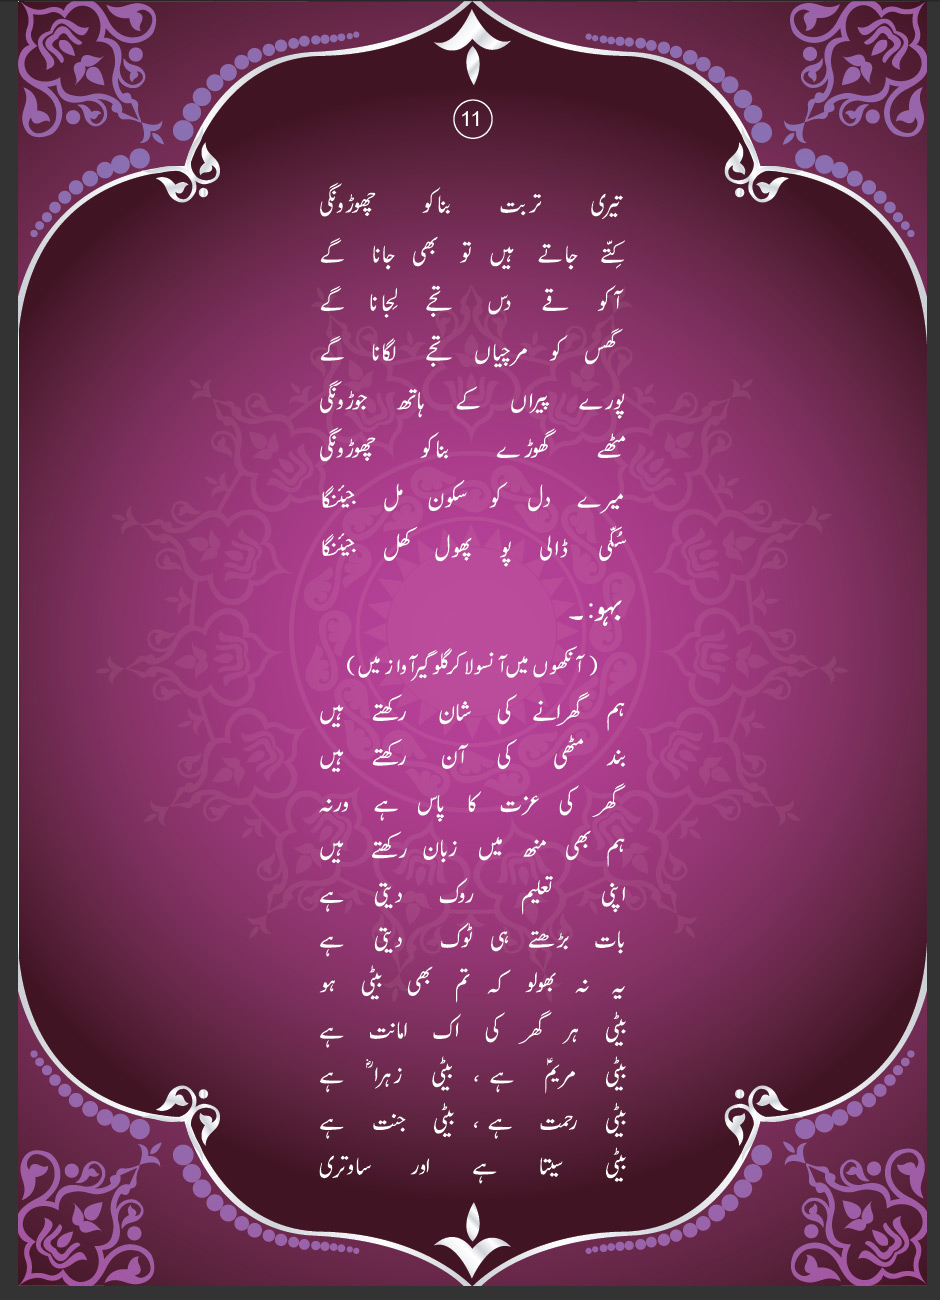 11
تیری تربت بناکو چھوڑونگی
کِتّے جاتے ہیں تو بھی جانا گے
آکو قے دس تجے لِجانا گے
گھس کو مرچیاں تجے لگانا گے
پورے پیراں کے ہاتھ جوڑونگی
مٹھے گھوڑے بناکو چھوڑونگی
میرے دل کو سکون مل جیئنگا
سُکّی ڈالی پو پھول کھل جیئنگا
بہو:۔
(آنکھوں میں آنسولاکر گلوگیر آواز میں)
ہم گھرانے کی شان رکھتے ہیں
بند مٹھی کی آن رکھتے ہیں
گھر کی عزت کا پاس ہے ورنہ
ہم بھی منھ میں زبان رکھتے ہیں
اپنی تعلیم روک دیتی ہے
بات بڑھتے ہی ٹوک دیتی ہے
یہ نہ بھولو کہ تم بھی بیٹی ہو
بیٹی ہر گھر کی اک امانت ہے
بیٹی مریمؑ ہے ، بیٹی زہراؓ ہے
بیٹی رحمت ہے ، بیٹی جنت ہے
بیٹی سیتا ہے اور ساوتری